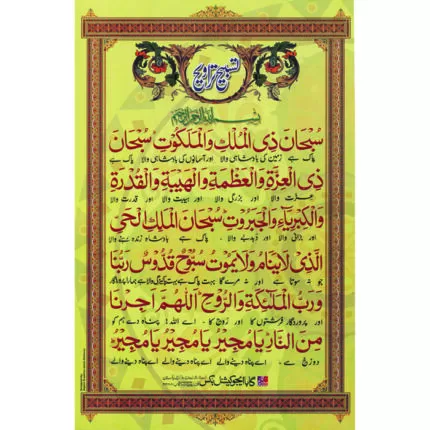 تسبیح تراویح
سُبْحَانَ ذِی الْمُلْکِ وَالْمَلَکُوْتِ سُبْحَانَ
پاک ہے زمین کی بادشاہی والا اور آسمانوں کی بادشاہی والا پاک ہے
ذِی الْعِزَّةِ وَالْعَظَمَةِ وَالْهَيْبَةِ وَالْقُدْرَةِ
عزت والا اور بزرگی والا اور ہیبت والا اور قدرت والا
وَالْکِبْرِیَآءِ وَالْجَبَرُوْتِ سُبْحَانَ الْمَلِکِ الْحَیِّ
اور بڑائی والا اور دبدبے والا پاک ہے بادشاہ زندہ رہنے والا
الَّذِیْ لَایَنَامُ وَلَایَمُوْتُ سُبُّوْحٌ قُدُّوْسٌ رَبُّنَا
جو نہ سوتا ہے اور نہ مرے گا بہت پاک ہے
وَرَبُّ الْمَلٰٓئِکَةِ وَالرُّوْحِ اَللّٰهُمَّ اَجِرْنَا
اور پروردگار فرشتوں کا اور روح کا اے اللہ! پناہ دے ہم کو
مِنَ النَّارِ یَا مُجِیْرُ یَا مُجِیْرُ یَا مُجِیْرُ
دوزخ سے ، اے پناہ دینے والے اے پناہ دینے والے اے پناہ دینے والے